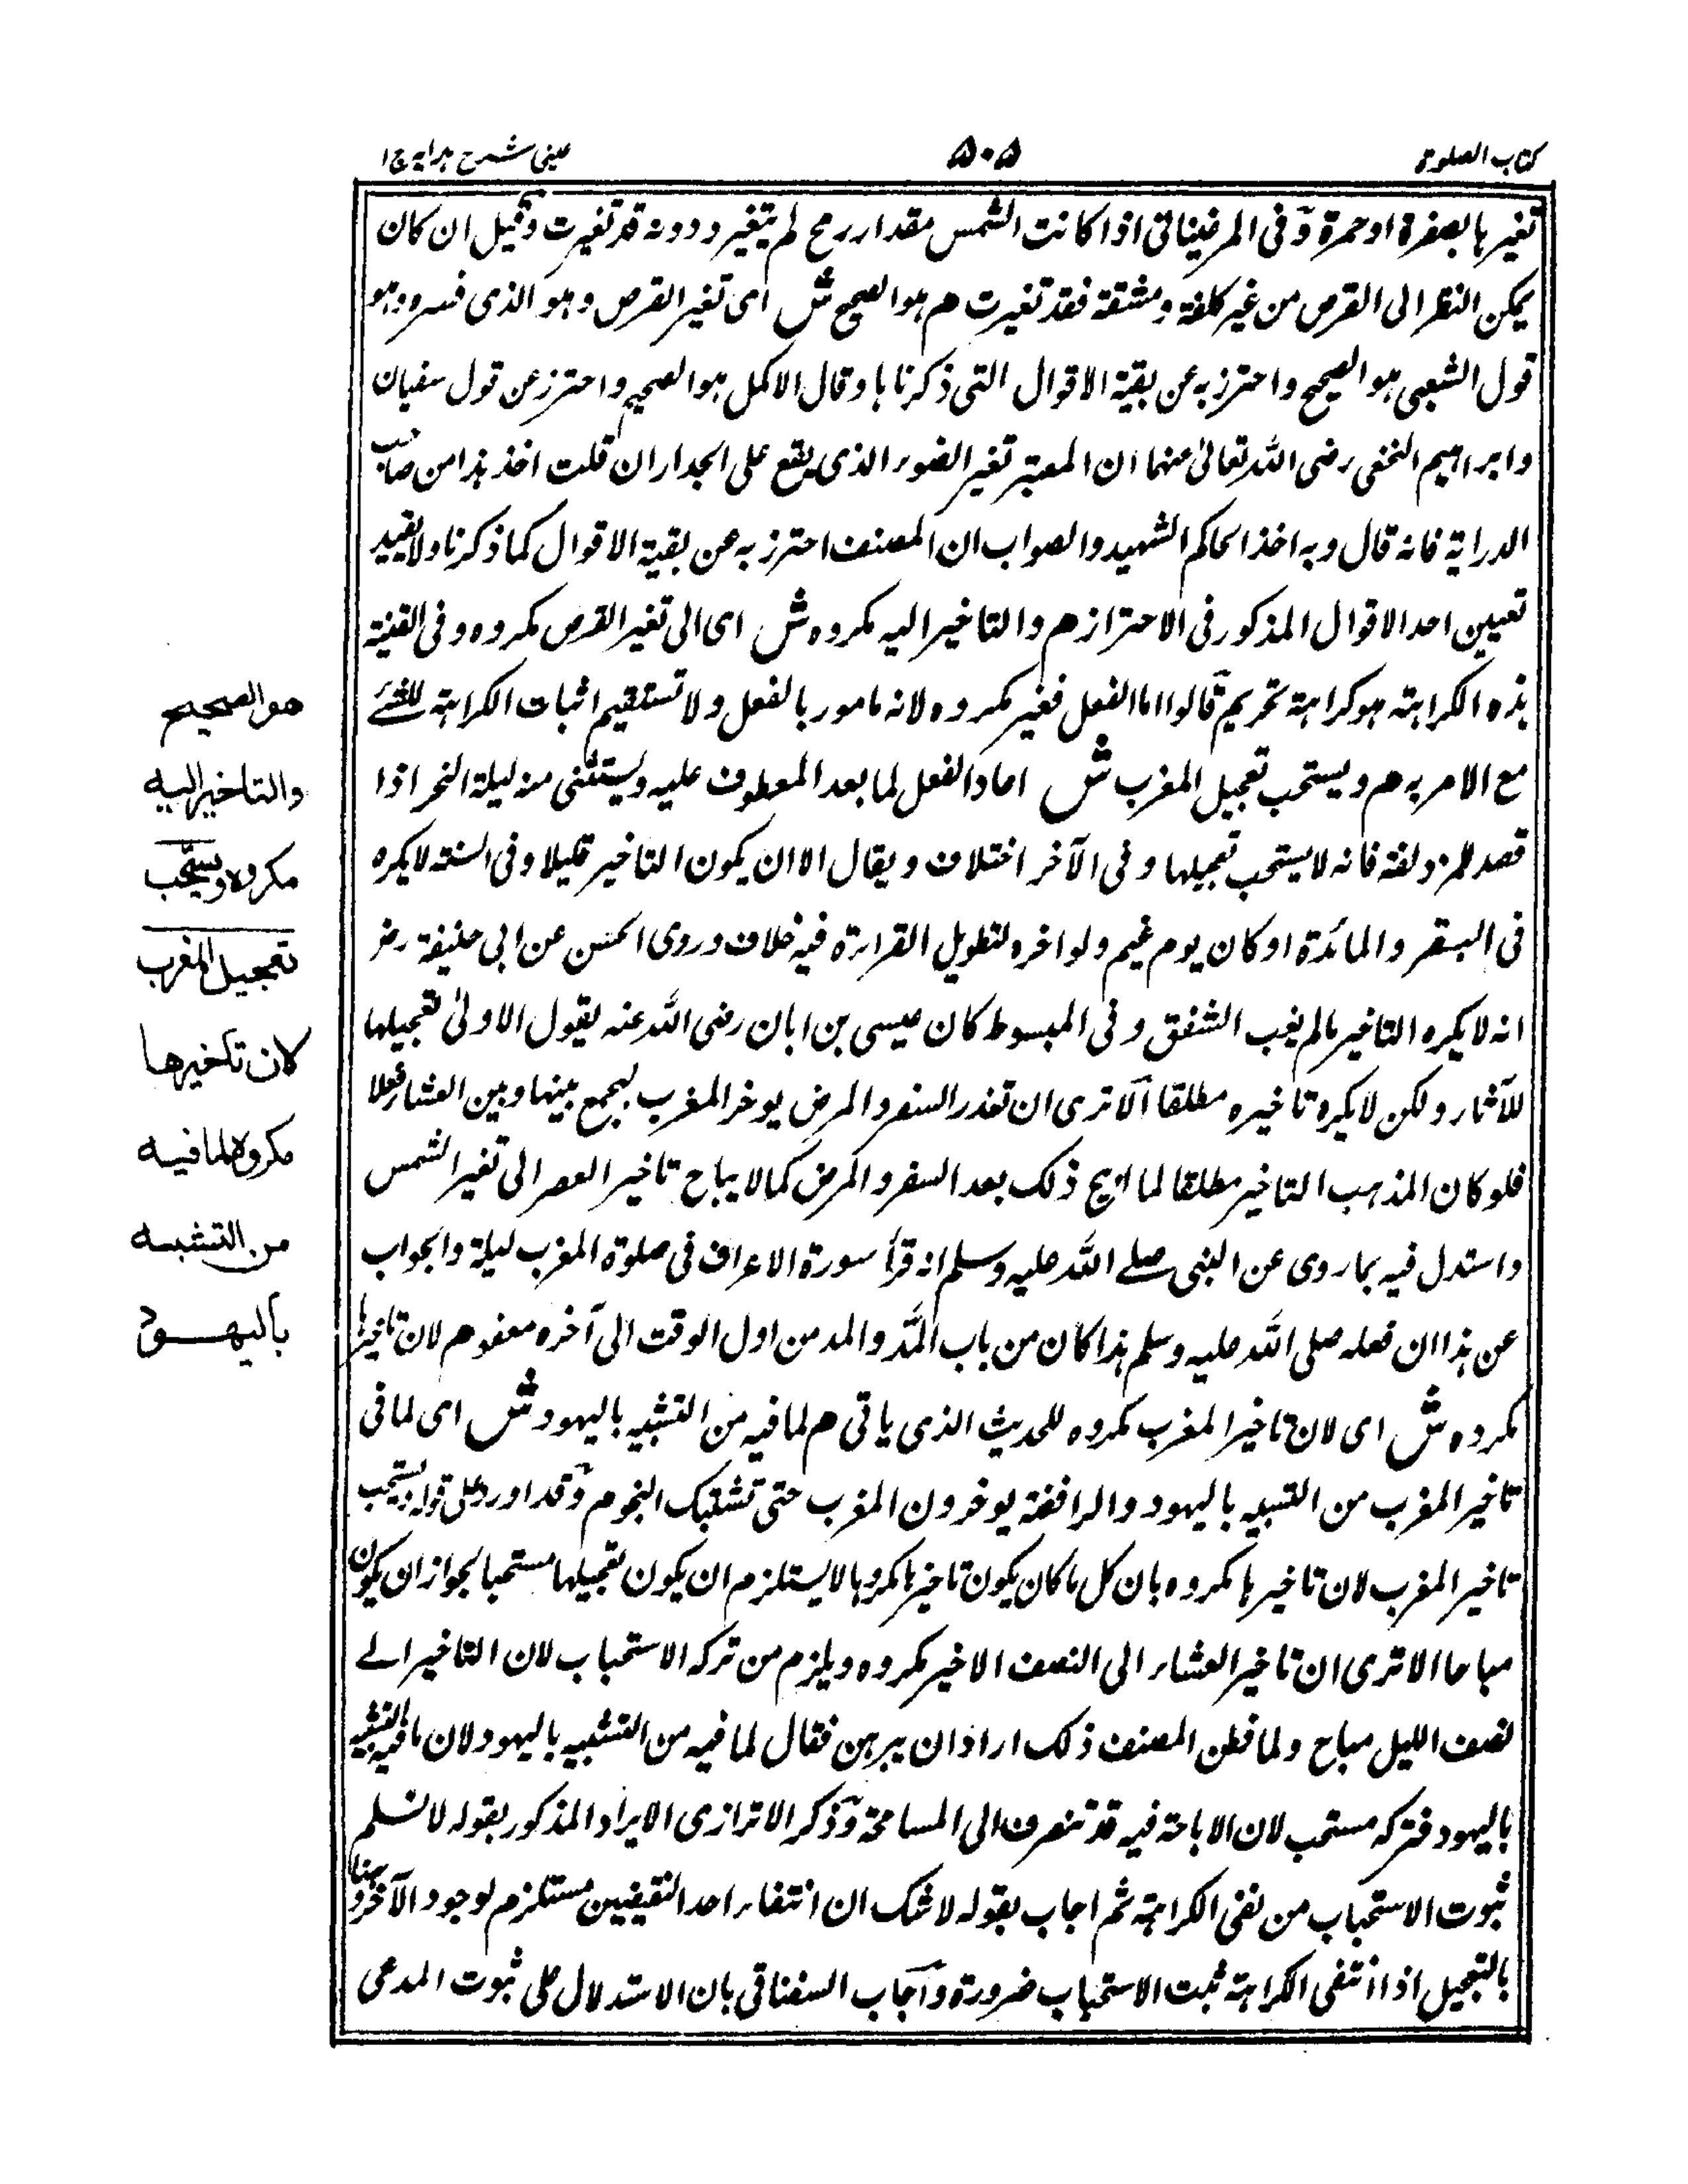 كتاب الصلوة
۵۰۵
عینی شرح ہدایہ ج۱
تغیرہا بصفرة او حمرة و فی المرغینانی اذا کانت الشمس مقدار رمح لم یتغیر و دونه قد تغیرت و قیل ان کان
یمکن النظر الی القرص من غیر کلفة و مشقة فقد تغیرت م ہو الصحیح ش ای تغیر القرص و ہو الذی فسره و ہو
قول الشعبی ہو الصحیح و احترز به عن بقیة الاقوال التی ذکرناہا و قال الاکمل ہو الصحیح و احترز عن قول سفیان
و ابراہیم النخعی رضی اللہ تعالیٰ عنہما ان المعتبر تغیر الضوء الذی یقع علی الجدار ان قلت اخذ ہذا من صاحب
الدرایة فانه قال و به اخذ الحاکم الشہید و الصواب ان المصنف احترز به عن بقیة الاقوال کما ذکرنا و لا یفید
تعیین احد الاقوال المذکور فی الاحتراز م و التاخیر الیه مکروه ش ای الی تغیر القرص مکروه و فی القنیة
ہذه الکراہة ہو کراہة تحریم قالوا اما الفعل فغیر مکروه لانه مامور بالفعل و لا تستقیم اثبات الکراہة للشئے
مع الامر به م و یستحب تعجیل المغرب ش اعاد الفعل لما بعد المعطوف علیه و یستثنی منه لیلة النحر اذا
قصد للمزدلفة فانه لا یستحب تعجیلہا و فی الآخر اختلاف و یقال الا ان یکون التاخیر قلیلا و فی السنة لا یکره
فی السفر و المائدة او کان یوم غیم و لو اخره لتطویل القراءة فیه خلاف و روی الحسن عن ابی حنیفة رضہ
انه لا یکره التاخیر مالم یغب الشفق و فی المبسوط کان عیسی بن ابان رضی اللہ عنہ یقول الاولیٰ تعجیلہا
للآثار و لکن لا یکره تاخیره مطلقا الا تری ان تعذر السفر و المرض یوخر المغرب لیجمع بینہا و بین العشاء فعلا
فلو کان المذہب التاخیر مطلقا لما ابیح ذلک بعد السفر و المرض کما لا یباح تاخیر العصر الی تغیر الشمس
و استدل فیه بما روی عن النبی صلے اللہ علیہ وسلم انہ قرأ سورة الاعراف فی صلوة المغرب لیلة و الجواب
عن ہذا ان فعله صلی اللہ علیہ وسلم ہذا کان من باب المَدّ و المد من اول الوقت الی آخره معفو م لان تاخیرہا
مکروه ش ای لان تاخیر المغرب مکروه للحدیث الذی یاتی م لما فیه من التشبیه بالیہود ش ای لما فی
تاخیر المغرب من التشبیه بالیہود و الرافضة یوخرون المغرب حتی تشتبک النجوم و قد اورد علی قوله و یستحب
تاخیر المغرب لان تاخیرہا مکروه بان کل ما کان یکون تاخیرہا مکروہا لا یستلزم ان یکون تعجیلہا مستحبا لجواز ان یکون
مباحا الا تری ان تاخیر العشاء الی النصف الاخیر مکروه و یلزم من ترکه الاستحباب لان التاخیر الے
نصف اللیل مباح و لما فطن المصنف ذلک اراد ان یبرہن فقال لما فیه من التشبیه بالیہود لان ما فیه التشبیه
بالیہود فترکه مستحب لان الاباحة فیه قد تنصرف الی المسامحة و ذکر الاترازی الایراد المذکور بقوله لا نسلم
ثبوت الاستحباب من نفی الکراہة ثم اجاب بقوله لا شک ان انتفاء احد النقیضین مستلزم لوجود الآخر و ہنا
بالتعجیل اذا انتفی الکراہة ثبت الاستحباب ضرورة و اجاب السغناقی بان الاستدلال علی ثبوت المدعی
هو الصحيح
والتاخير اليه
مكروه ويستحب
تعجيل المغرب
لان تاخيرها
مكروه لما فيه
من التشبه
باليهود